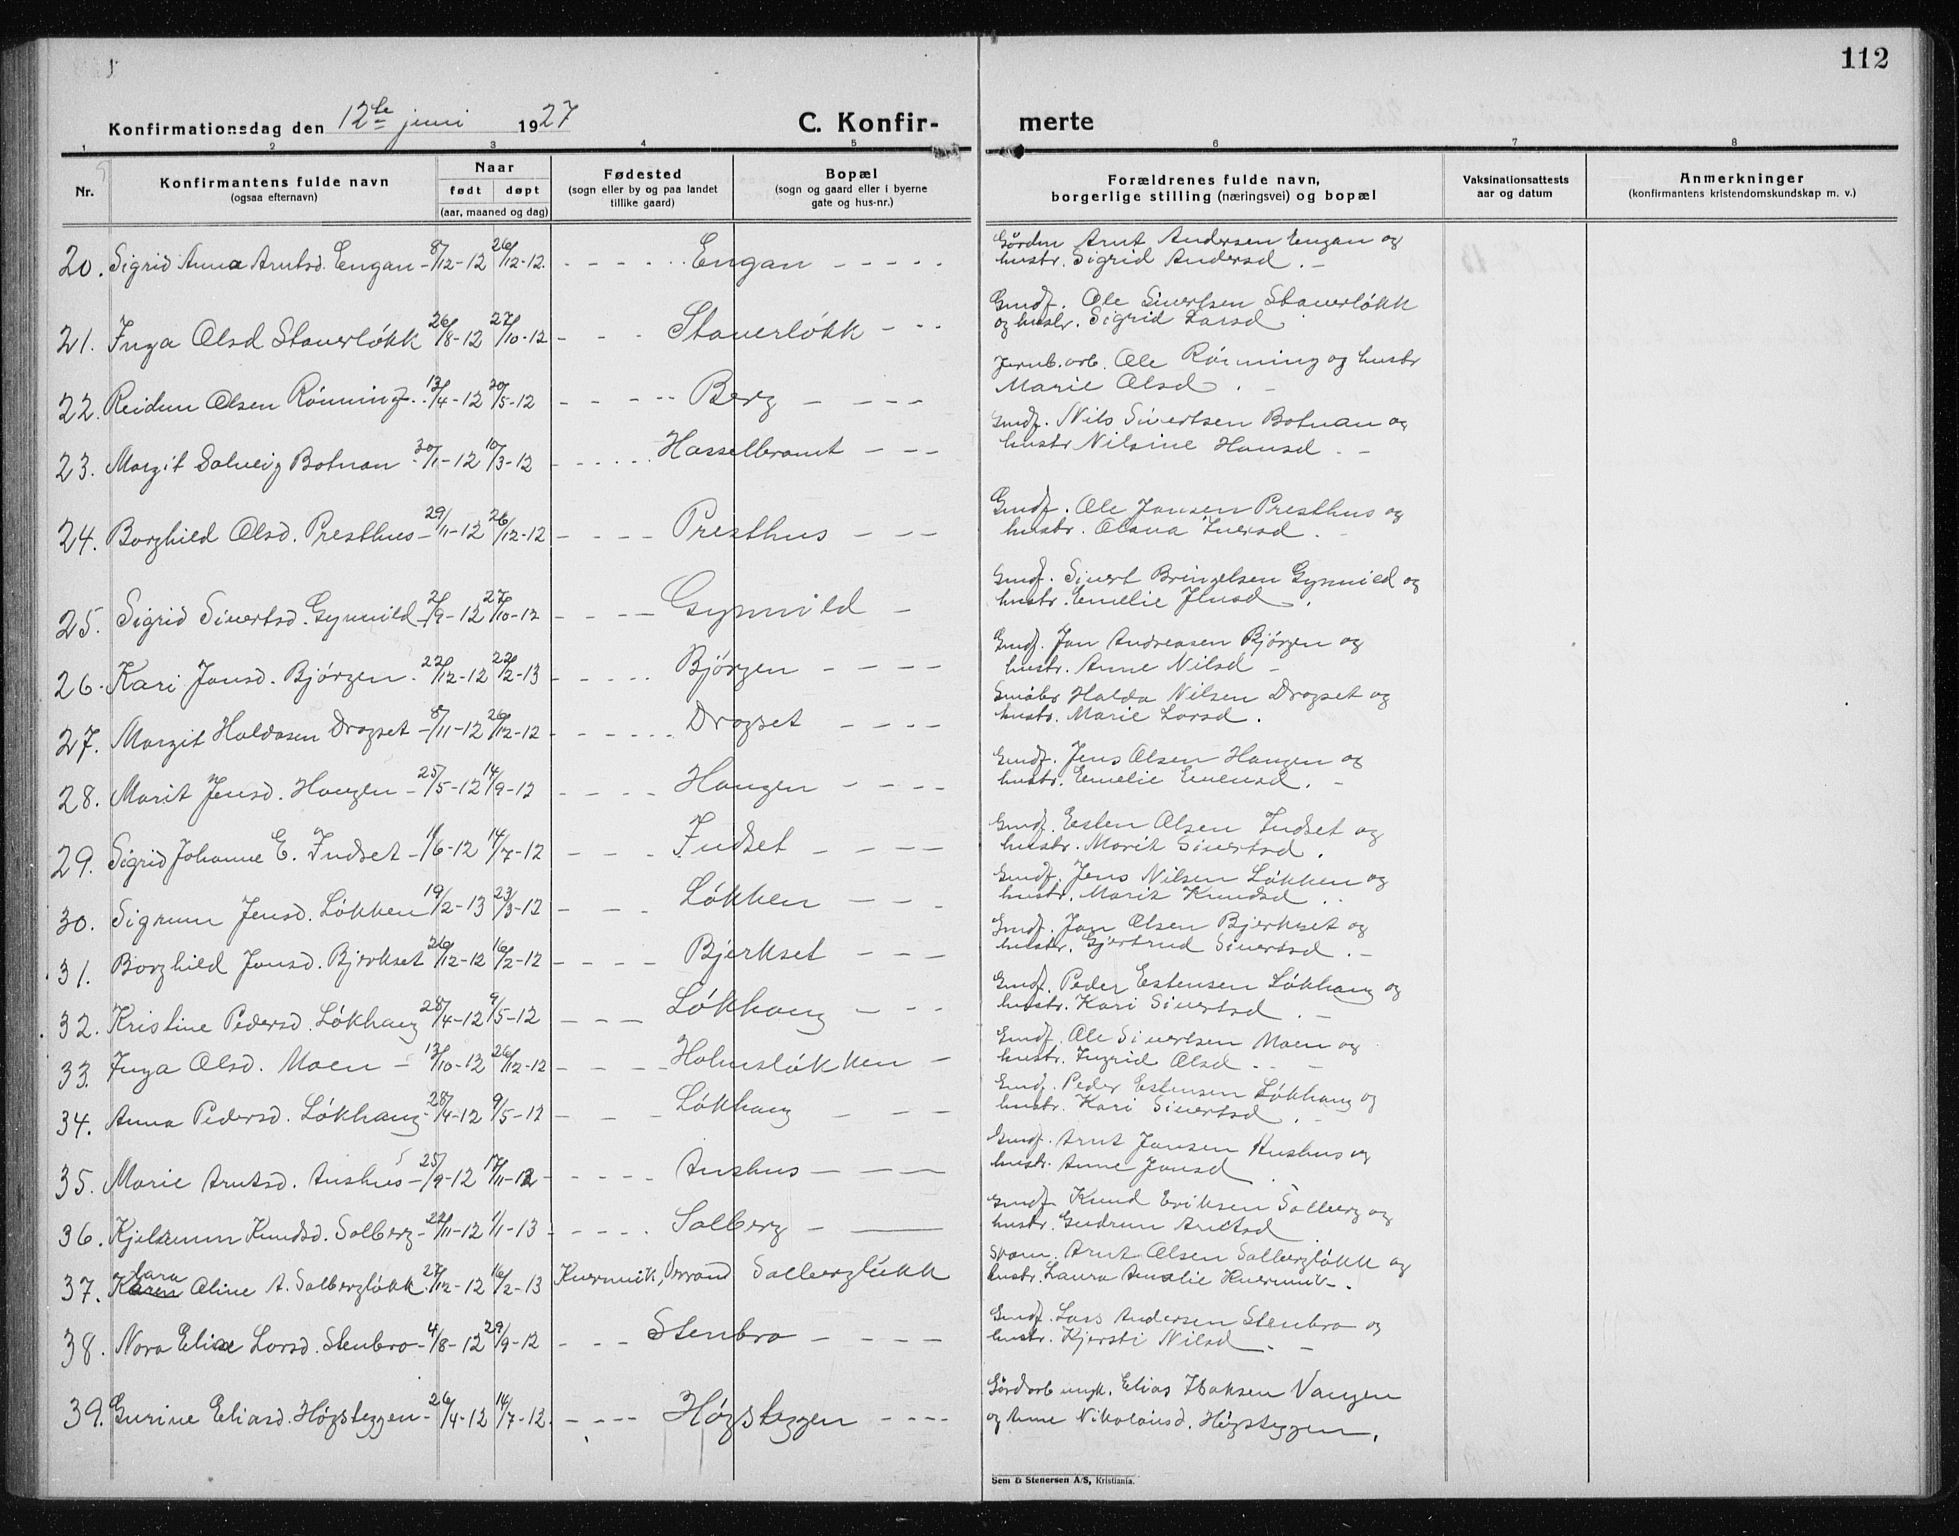 112
Konfirmationsdag den 12te juni 1927 C. Konfir- merte
1 2 3 4 5 6 7 8
Nr. Konfirmantens fulde navn (ogsaa efternavn) Naar født døpt (aar, maaned og dag) Fødested (sogn eller by og paa landet tillike gaard) Bopæl (sogn og gaard eller i byerne gate og hus-nr.) Forældrenes fulde navn, borgerlige stilling (næringsvei) og bopæl Vaksinationsattests aar og datum Anmerkninger (konfirmantens kristendomskundskap m. v.)
20. Sigrid Anna Arntsd. Engan - 8/12-12 26/12-12. - - - - - Engan - - - - - Gårdm Arnt Andersen Engan og
hustr. Sigrid Andersd. -
21. Inga Olsd Staverløkk 26/8-12 27/10-12 - - - Staverløkk - - - Gmdf. Ole Sivertsen Staverløkk
og hustr. Sigrid Larsd
22. Reidun Olsen Rönning. 13/4-12 20/5-12 - - - - Berg - - - - Jernb. arb. Ole Rönning og hustr
Marie Olsd. -
23. Margit Solveig Botnan - 30/1-12 10/3-12 - - - - - Hasselbramt - - - Gmdf. Nils Sivertsen Botnan og
hustr Nilsine Hansd. -
24. Borghild Olsd. Presthus - 29/11-12 26/12-12 - - - - Presthus - - - Gmdf. Ole Jonsen Presthus og
hustr. Olava Iversd. -
25. Sigrid Sivertsd. Gynnild - 21/9-12 27/10-12 - - - - Gynnild - Gmdf. Sivert Bringelsen Gynnild og
hustr. Emelie Jensd.
26. Kari Jonsd. Bjørgen. 22/12-12 22/2-13 - - - - - Bjørgen - - - - Gmdf. Jon Andreasen Bjørgen og
hustr. Anne Nilsd -
27. Margit Haldosen Drogset - 8/11-12 26/12-12 - - - - - Drogset - - - - Småbr Haldo Nilsen Drogset og
hustr. Marie Larsd.
28. Marit Jensd. Haugen - 25/5-12 14/9-12 - - - - Haugen - - - - Gmdf. Jens Olsen Haugen og
hustr. Emelie Evensd. -
29. Sigrid Johanne E. Indset - 11/6-12 14/7-12 - - - Indset - - - - Gmdf. Esten Olsen Indset og
hustr. Marit Sivertsd.
30. Sigrunn Jensd. Løkken 19/2-13 23/3-12 - - - Løkken - - - Gmdf. Jens Nilsen Løkken og
hustr. Marit Knudsd. .
31. Borghild Jonsd. Bjerkset 26/12-12 16/2-12 - - - - Bjerkset - - - Gmdf. Jon Olsen Bjerkset og
hustr. Gjertrud Sivertsd. -
32. Kristine Pedersd. Løkhaug 28/4-12 9/5-12 - - - Løkhaug - - - Gmdf. Peder Estensen Løkhaug og
hustr. Kari Sivertsd. -
33. Inga Olsd. Moen - 13/10-12 26/12-12 - - - - Holmsløkken - Gmdf. Ole Sivertsen Moen og
hustr. Ingrid Olsd. . -
34. Anna Pedersd. Løkhaug - 28/4-12 9/5-12 - - - Løkhaug - - - Gmdf. Peder Estensen Løkhaug og
hustr. Kari Sivertsd. -
35. Marie Arntsd. Aushus - 25/9-12 17/11-12 - - - - Aushus - - - Gmdf. Arnt Jonsen Aushus og
hustr. Anne Jonsd
36. Knudsd. Solberg - 22/11-12 1/1-13 - - - - Solberg - - Gmdf. Knud Eriksen Solberg og
hustr. Gudrun Arntsd
37. Karen Klara Oline A. Solbergløkk. 27/12-12 16/2-13 Kvernvik, Verran Solbergløkk Arnt Olsen Solbergløkk og
hustr. Laura Amalie Kvernvik -.
38. Nora Elise Larsd. Stenbro - 4/8-12 29/9-12 - - - Stenbro - - - - Gmdf. Lars Andersen Stenbro og
hustr. Kjersti Nilsd. -
39. Gurine Eliasd. Høgsteggen - 26/4-12 14/7-12. - - - - Høgsteggen - - - - Gårdarb ungk. Elias Isaksen Vangen
og Ane Nikolaisd. Høgsteggen.
Sem & Stenersen A/S, Kristiania.